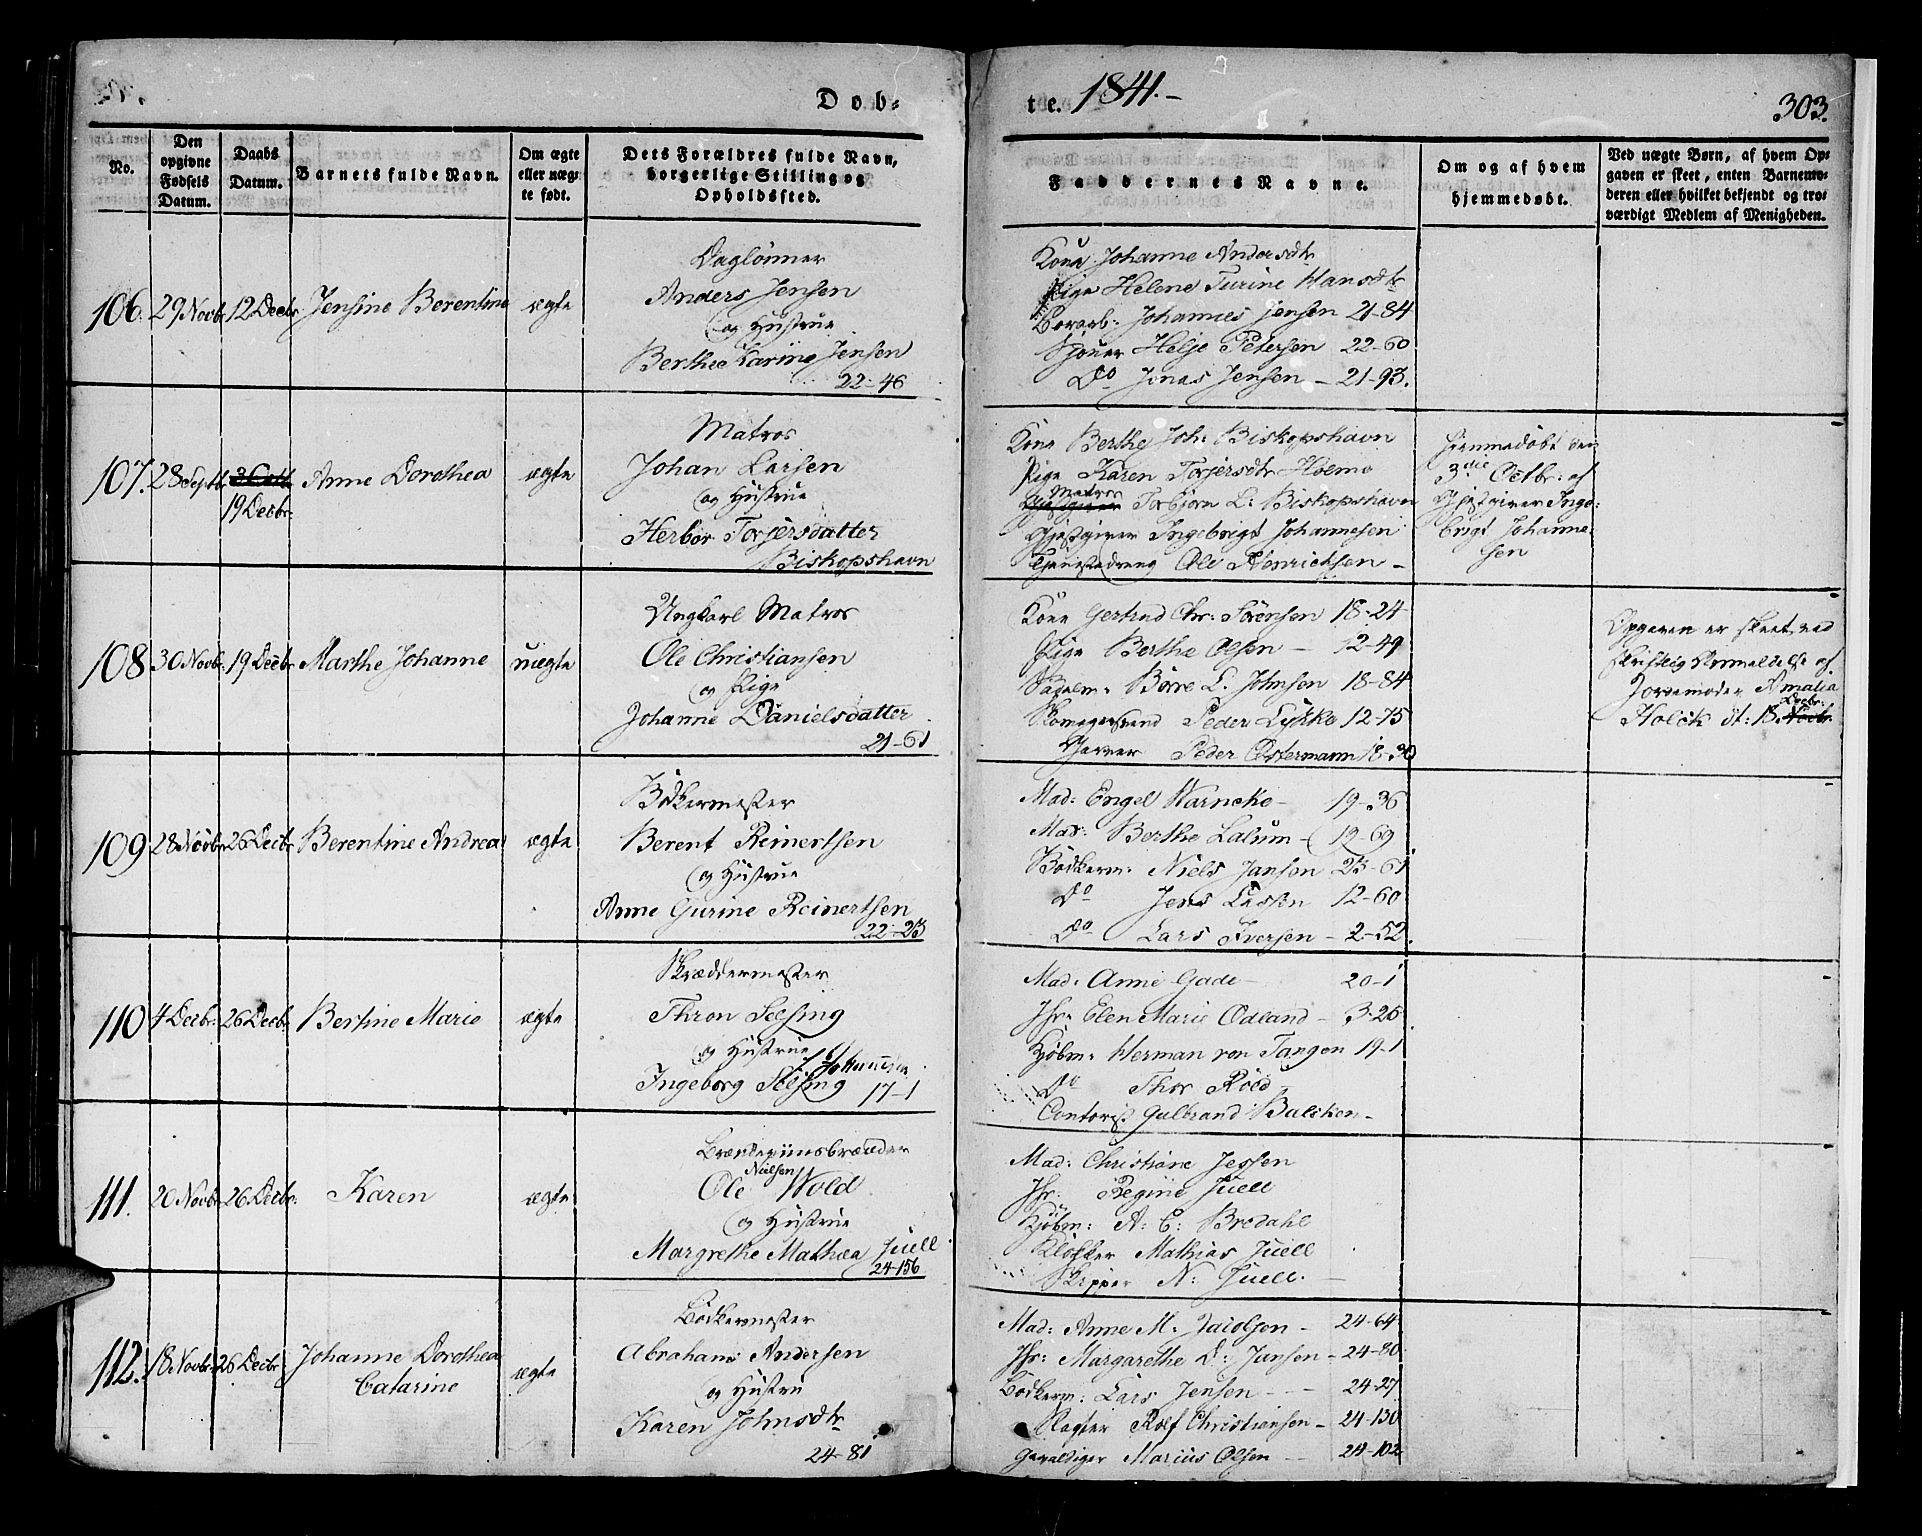 Døb-
te. 1841.-
303.
No.
Den opgivne Fødsels Datum.
Daabs Datum.
Barnets fulde Navn.
Om ægte eller uægte født.
Dets Forældres fulde Navn, borgerlige Stilling og Opholdssted.
Faddernes Navne.
Om og af hvem hjemmedøbt.
Ved uægte Børn, af hvem Opgaven er skeet, enten Barnemoderen eller hvilket bekjendt og troværdigt Medlem af Menigheden.
106. 29 Novbr 12 Decbr Jensine Berentine ægte
Daglønner
Anders Jensen
og Hustrue
Berthe Karine Jensen
22-46
Kone Johanne Andersdtr
Pige Helene Turine Hansdtr
Borarb: Johannes Jensen 21-84
Sjouer Helje Petersen 22-60
Do Jonas Jensen - 21-93.
107. 28 Septbr 3 Octbr 19 Decbr: Anne Dorothea ægte
Matros
Johan Larsen
og Hustrue
Herbor Torjersdatter
Biskopshavn
Kone Berthe Joh: Biskopshavn
Pige Karen Torjersdtr Hoemo
Matros
Torbjørn L: Biskopshavn
Gjestgiver Ingebrigt Johannesen
Tjenestedreng Ole Henrichsen -
Hjemmedøbt den
3die Octbr: af
Gjestgiver Inge-
brigt Johanne-
sen
108 30 Novbr. 19 Decbr Marthe Johanne uægte
Ungkarl Matros
Ole Christiansen
og Pige
Johanne Danielsdatter
21-61
Kone Gertrud Chr: Sørensen 18-24
Pige Berthe Olsen - 12-49
Sadelm: Børre L. Johnsen 18-84
Skomagersvend Peder Lykke 12-75
Garver Peder Ostermann 18-30
Opgaven er skeet ved
skriftlig Anmeldelse af
Jordemoder Amalia
Decbr:
Holck dt: 18 Novbr.
109 28 Novbr 26 Decbr Berentine Andrea ægte
Bødkermester
Berent Reinertsen
og Hustrue
Anne Gurine Reinertsen
22-23
Mad: Engel Warncke - 19-36
Mad: Berthe Lalum - 19-69
Bødkerm: Niels Jansen 23-61
Do Jens Lassen 12-60
Do Lars Iversen - 2-52.
110 4 Decbr: 26 Decbr. Bertine Marie ægte
Skræddermester
Thron Selsing
og Hustrue
Johannesen
Ingeborg Selsing 17-1
Mad: Anne Gade - 20-1
Jfr: Elen Marie Odland - 3-25
Kjøbm: Herman von Tangen 19-1
Do Thor Roed
Contorist Gulbrand Balchen -
111. 20 Novbr 26 Decbr: Karen ægte
Brændeviinsbrænder
Nielsen
Ole Wold
og Hustrue
Margrethe Mathea Juell
24-156
Mad: Christiane Jessen
Jfr: Regine Juell
Kjøbm: A: C: Bredahl
Klokker Mathias Juell
Skipper N: Juell.
112. 18 Novbr 26 Decbr. Johanne Dorothea
Catarine ægte
Bødkermester
Abraham Andersen
og Hustru
Karen Johnsdtr
24-81
Mad: Anne M. Jacobsen - 24-64
Jfr: Margarethe D: Jansen - 24-80
Bødkerm: Lars Jensen - - 24-27
Slagter Rolf Christiansen - 24-130
Gevaldiger Marius Olsen - - 24-102